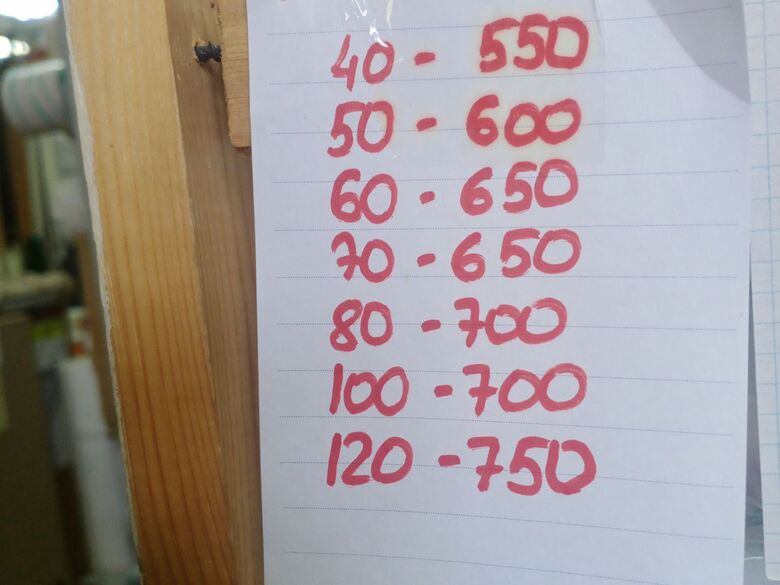 40 - 550
50 - 600
60 - 650
70 - 650
80 - 700
100 - 700
120 - 750